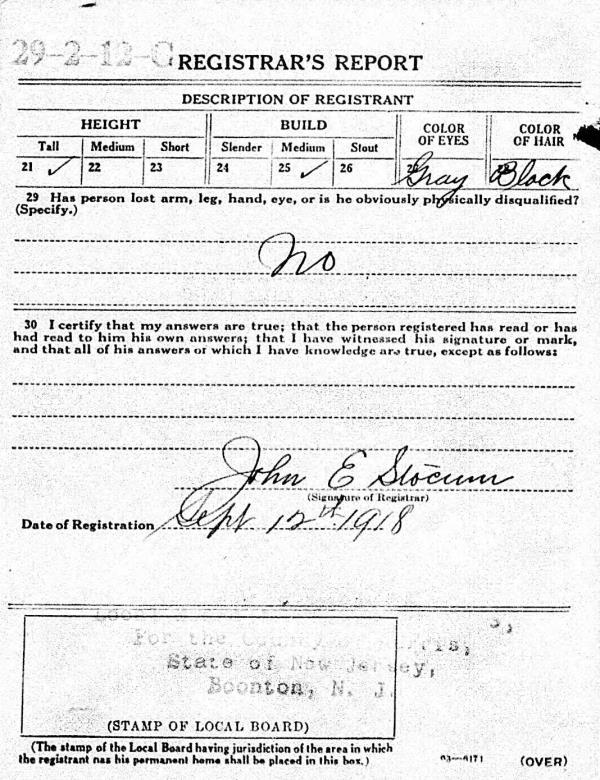 29-2-12-C
REGISTRAR'S REPORT
DESCRIPTION OF REGISTRANT
HEIGHT BUILD COLOR OF EYES COLOR OF HAIR
Tall Medium Short Slender Medium Stout
21 ✓ 22 23 24 25 ✓ 26 Gray Black
29 Has person lost arm, leg, hand, eye, or is he obviously physically disqualified?
(Specify.)
No
30 I certify that my answers are true; that the person registered has read or has
had read to him his own answers; that I have witnessed his signature or mark,
and that all of his answers of which I have knowledge are true, except as follows:
John E Slocum
(Signature of Registrar)
Date of Registration Sept 12th 1918
For the County
State of New Jersey,
Boonton, N. J.
(STAMP OF LOCAL BOARD)
(The stamp of the Local Board having jurisdiction of the area in which
the registrant has his permanent home shall be placed in this box.)
03—6171 (OVER)